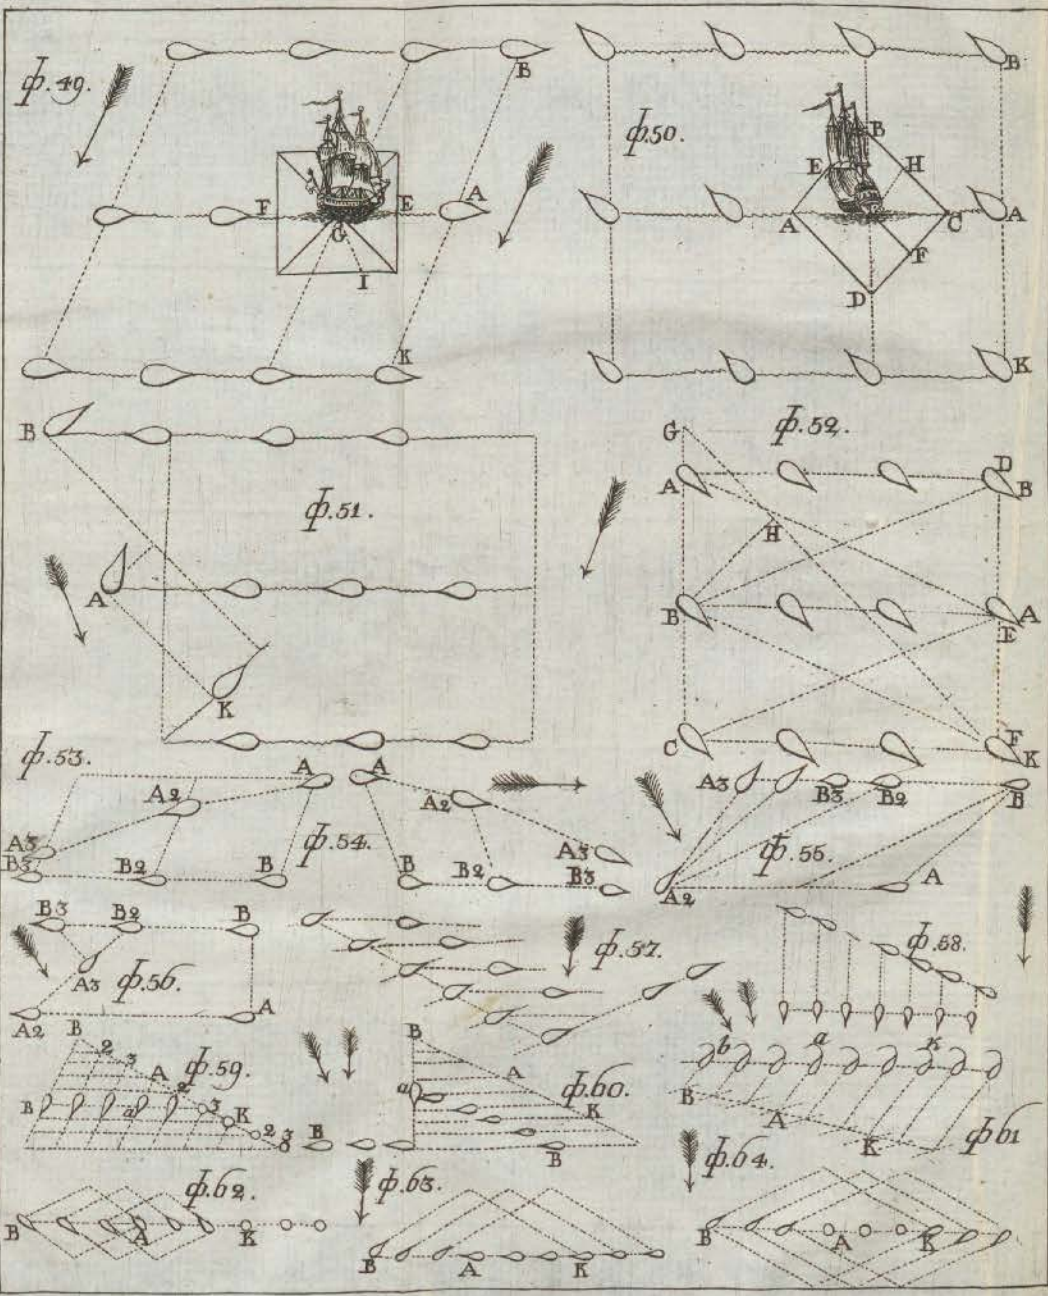 ф.49.
B
F
E
A
G
I
K
ф.50.
B
B
E
H
A
C
A
F
D
K
B
ф.51.
A
K
G
ф.52.
A
D
B
H
B
A
E
C
F
K
ф.53.
A
A2
A3
B3
B2
B
ф.54.
A
A2
A3
B
B2
B3
A3
B3
B2
B
ф.55.
A2
A
B3
B2
B
A3
ф.56.
A2
A
ф.57.
ф.58.
B
2
3
A
ф.59.
2
B
a
3
K
2
3
B
a
A
ф.60.
K
B
B
b
a
K
B
A
K
ф.61
ф.62.
B
A
K
ф.63.
B
A
K
ф.64.
B
A
K